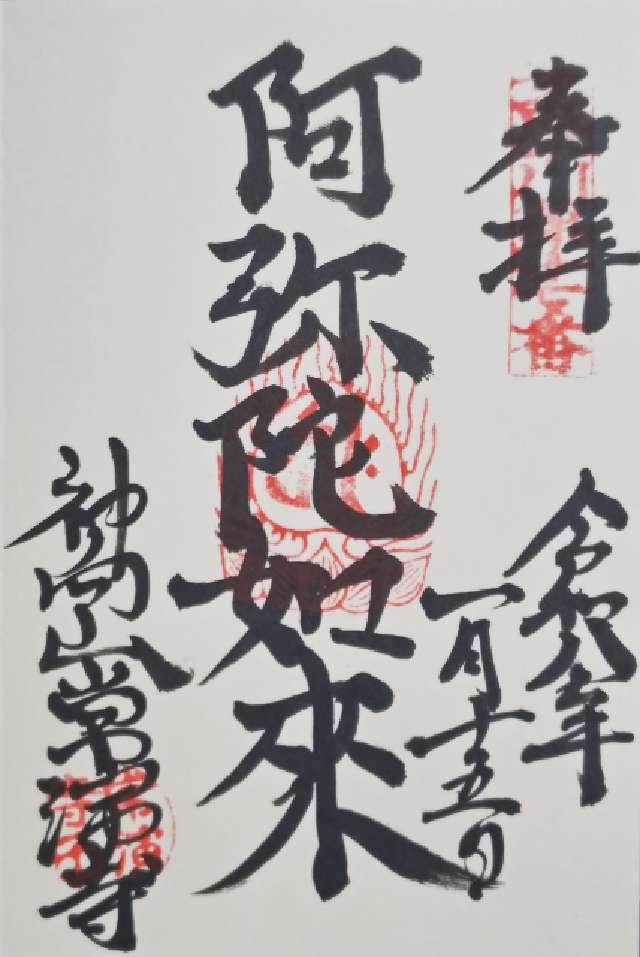 奉拝
令和八年
一月十五日
阿弥陀如來
神向山常満寺
番